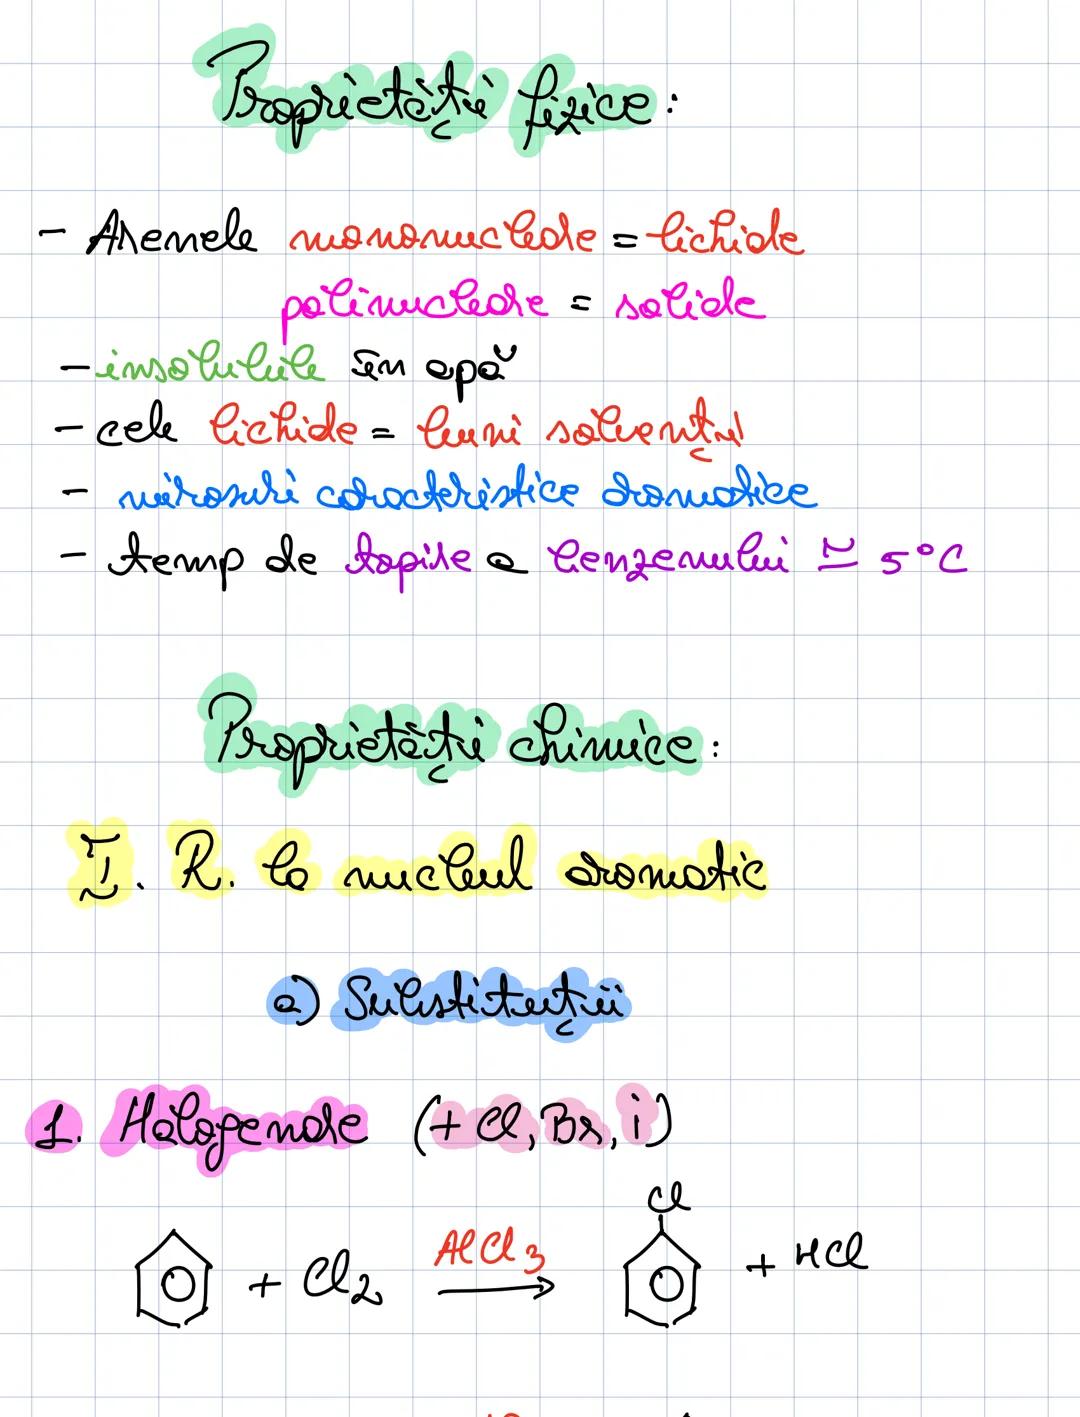 Proprietăți fizice:
- Arenele mononucleare = lichide
polinucleare = solide
- insolubile în apă
- cele lichide = buni solvenți
- mirosuri caracteristice aromatice
- temp de topire a benzenului ≅ 5°C
Proprietăți chimice:
I. R. la nucleul aromatic
a) Substituții
1. Halogenare (+ Cl, Br, i)
Cl
+ Cl2 AlCl3 → + HCl